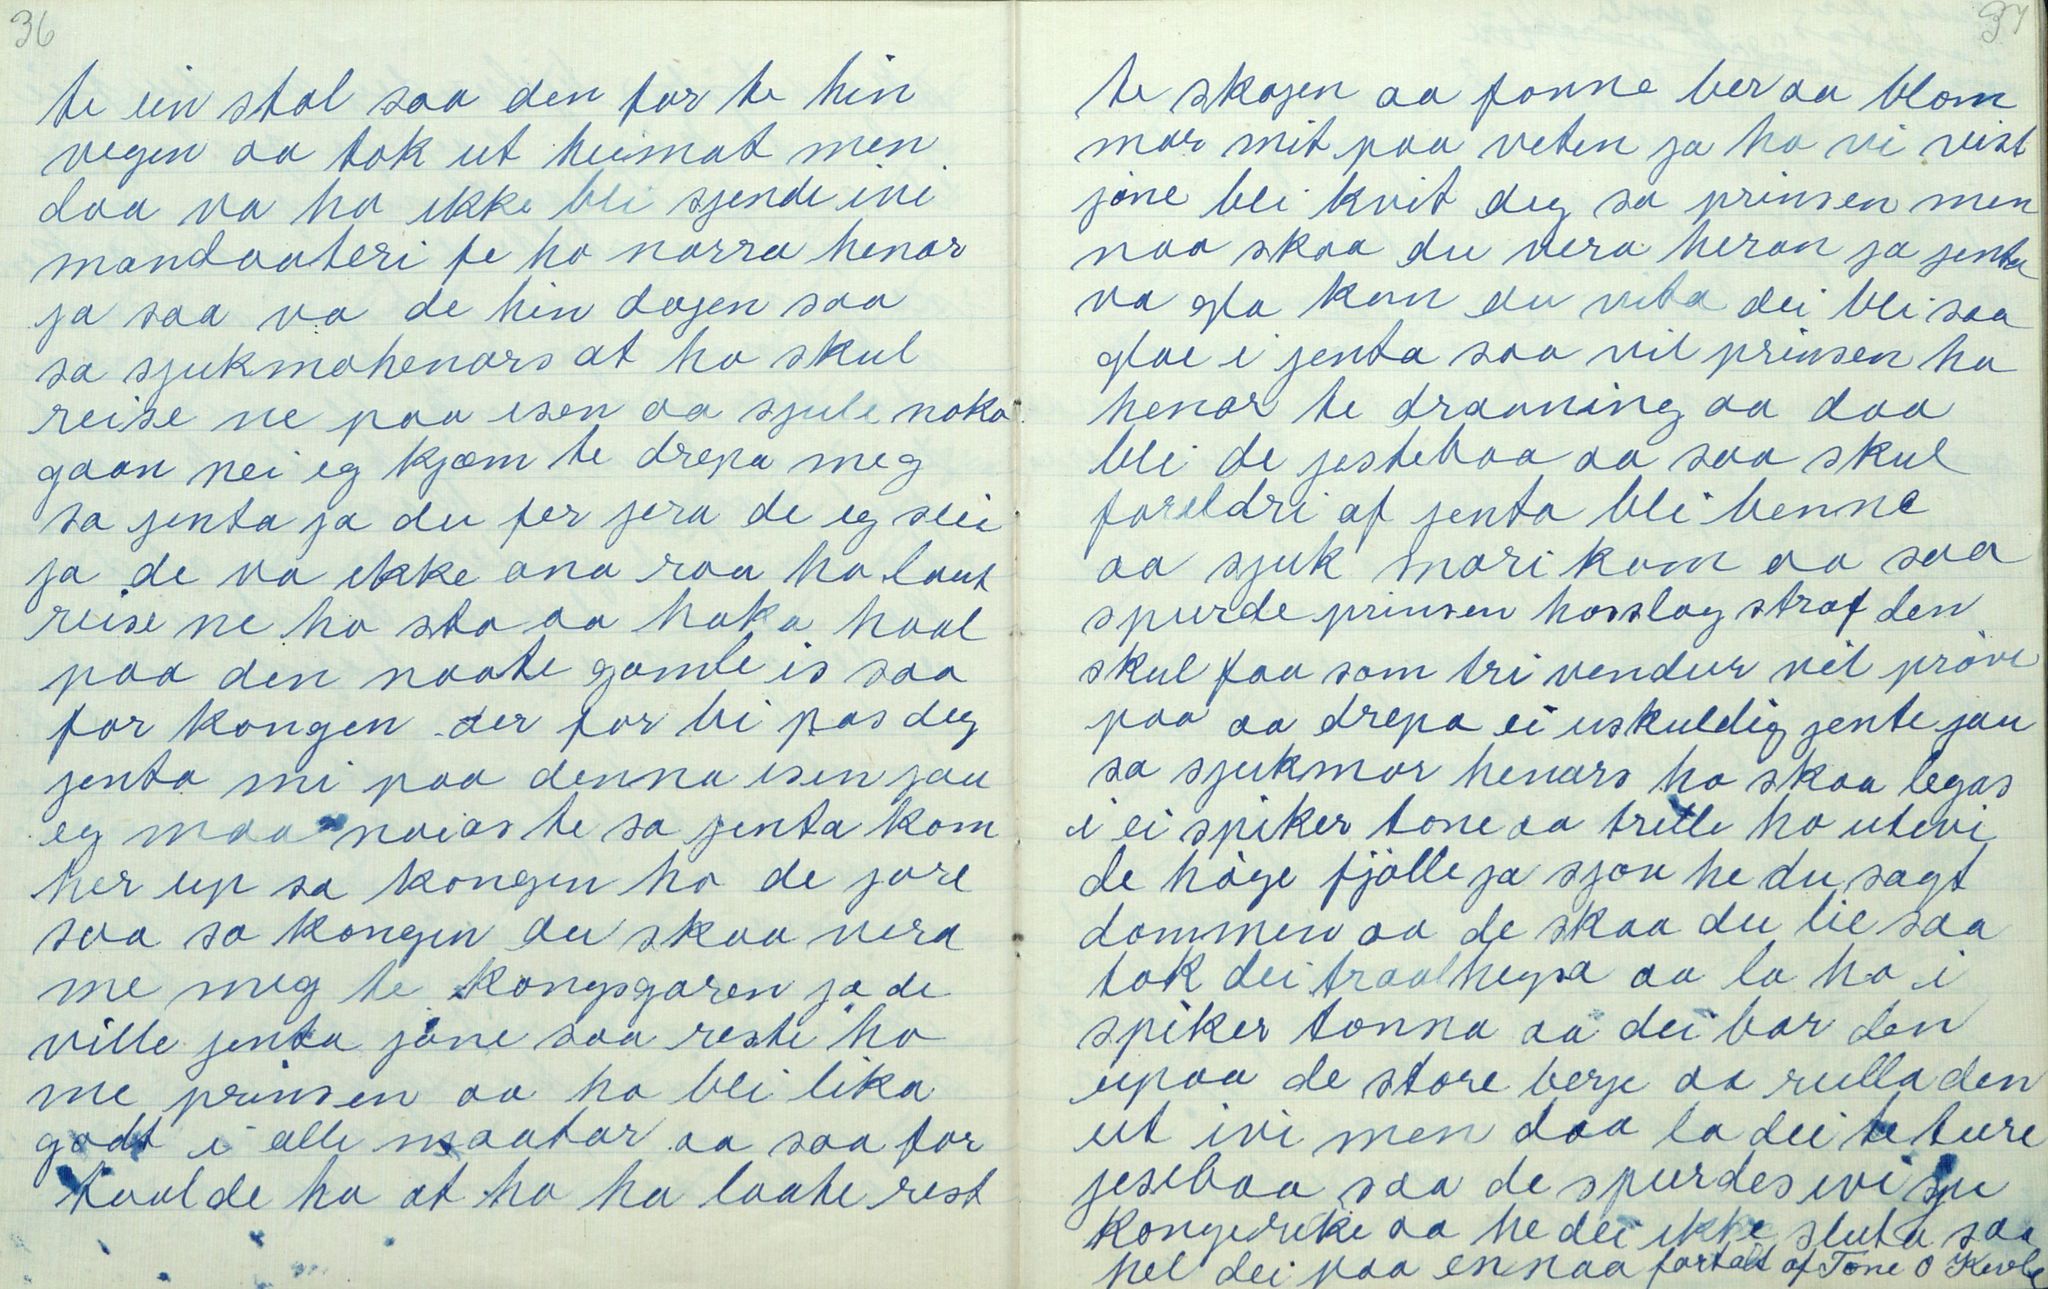 36
te ein stol saa den for te hin
vegen aa tok ut heimat men
daa va ho ikke bli sjende ivi
mandaateri fe ho narra henar
ja saa va de hin dagen saa
sa sjukmohenars at ho skul
reise ne paa isen aa sjule noko
gaan nei eg kjæm te drepa meg
sa jenta ja du fer jera de eg seie
ja de va ikke ana raa ho laut
reise ne ho sto aa haka haal
paa den naate gamle is saa
for kongen der for bi pas deg
jenta mi paa denna isen jau
eg maa noias te sa jenta kom
her up sa kongen ho de jore
saa sa kongen du skaa vera
me meg te kongsgaren ja de
ville jenta jöne saa reste ho
me prinsen aa ho bli lika
godt i alle maatar aa saa for
taalde ho at ho ha laate rest
37
te skogen aa fonne ber aa blom
mar mit paa veten ja ho vi vist
jöne bli kvit deg sa prinsen men
naa skaa du vera heran ja jenta
va gla kan du vita dei bli saa
glae i jenta saa vil prinsen ha
henar te draaning aa daa
bli de jestebaa aa saa skul
foreldri af jenta bli benne
aa sjuk mori kom aa saa
spurde prinsen hosslag straf den
skul faa som tri vendur vil pröve
paa aa drepa ei uskuldig jente jau
sa sjukmor henars ho skaa legas
i ei spiker tone aa trille ho utivi
de höge fjölle ja sjön he du sagt
dommen aa de skaa du lie saa
tok dei traalhegsa aa la ho i
spiker tonna aa dei bar den
upaa de store berje aa rulla den
ut ivi men daa la dei te ture
jesebaa saa de spurdes ivi sju
kongerike aa he dei ikke sluta saa
hel dei paa ennaa fortalt af Tone O